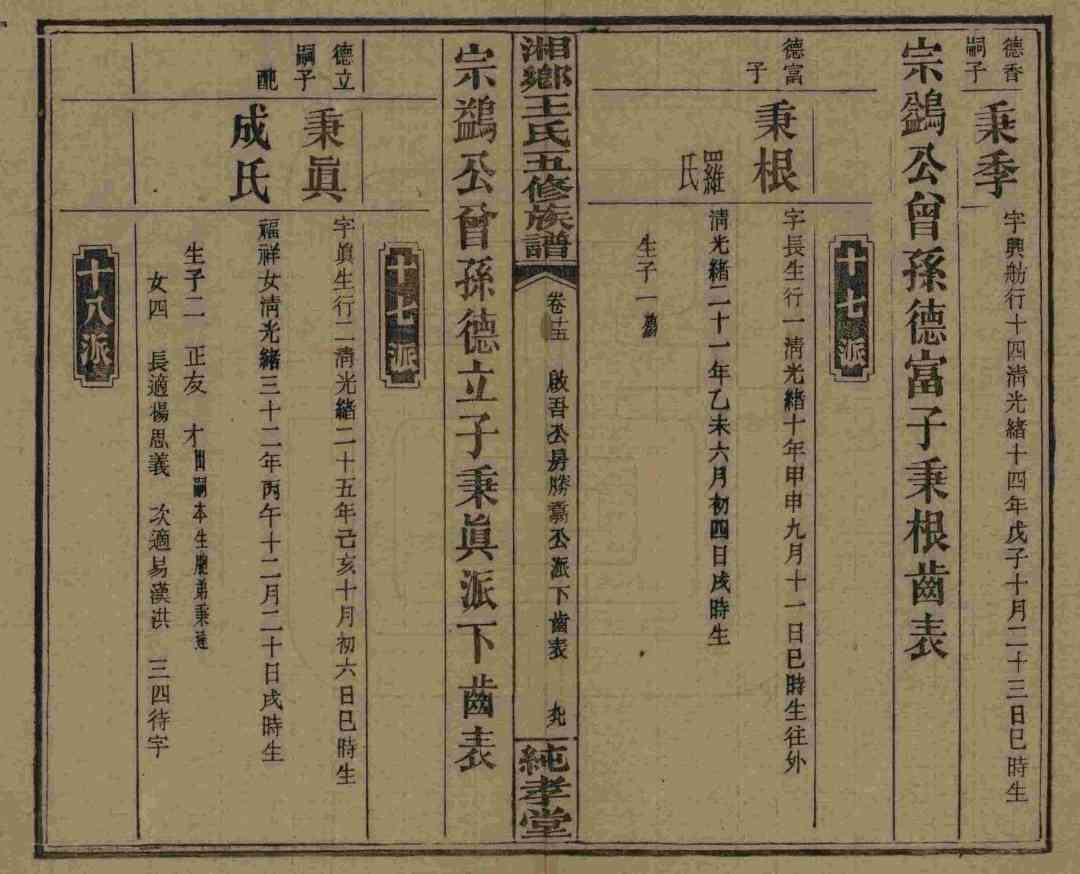 德香
嗣子
秉季
字興舫行十四清光緒十四年戊子十月二十三日巳時生
宗鷁公曾孫德富子秉根齒表
十七派
德富
子
秉根
字長生行一清光緒十年甲申九月十一日巳時生往外
羅氏
清光緒二十一年乙未六月初四日戌時生
生子一
湘鄉王氏五修族譜
卷十五
啟吾公房勝公派下齒表
九
純孝堂
宗鷁公曾孫德立子秉眞派下齒表
十七派
德立
嗣子
秉眞
字眞生行二清光緒二十五年己亥十月初六日巳時生
配
成氏
福祥女清光緒三十二年丙午十二月二十日戌時生
生子二 正友 才出嗣本生胞弟秉達
女四 長適楊思義 次適易漢洪 三四待字
十八派